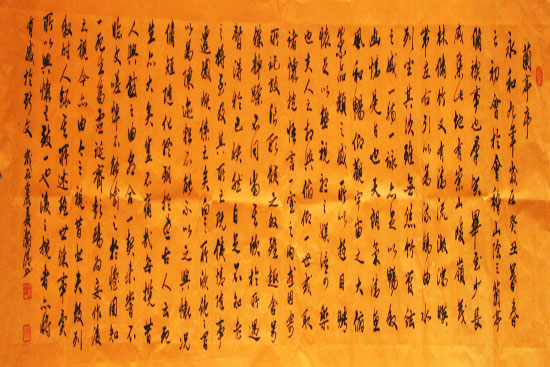 蘭亭序
永和九年歲在癸丑暮春
之初會於會稽山陰之蘭亭
脩稧事也群賢畢至少長
咸集此地有崇山峻領茂
林脩竹又有清流激湍暎
帶左右引以為流觴曲水
列坐其次雖無絲竹管絃
之盛一觴一詠亦足以暢敘
幽情是日也天朗氣清惠
風和暢仰觀宇宙之大俯
察品類之盛所以遊目騁
懷足以極視聽之娛信可樂
也夫人之相與俯仰一世或取
諸懷抱悟言一室之內或因寄
所託放浪形骸之外雖趣舍萬
殊靜躁不同當其欣於所遇
暫得於己快然自足不知老
之將至及其所之既倦情隨事
遷感慨係之矣向之所欣俛仰之間
以為陳迹猶不能不以之興懷況
脩短隨化終期於盡古人云死
生亦大矣豈不痛哉每攬昔
人興感之由若合一契未嘗不
臨文嗟悼不能喻之於懷固知
一死生為虛誕齊彭殤為妄作後
之視今亦由今之視昔悲夫故列
敘時人錄其所述雖世殊事異
所以興懷其致一也後之攬者亦將
有感於斯文